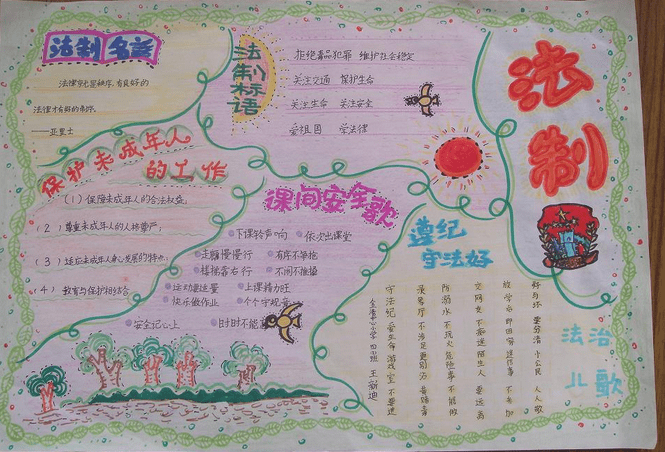 法制名言
法律就是秩序,有良好的
法律才有好的秩序。
——亚里士
法制标语
拒绝毒品犯罪 维护社会稳定
关注交通 保护生命
关注生命 关注安全
爱祖国 学法律
法制
保护未成年人
的工作
(1)保障未成年人的合法权益;
(2)尊重未成年人的人格尊严;
(3)适应未成年人身心发展的特点;
(4)教育与保护相结合
课间安全歌
下课铃声响 依次出课堂
走廊慢慢行 有序不争抢
楼梯靠右行 不闹不推搡
运动要适量 上课精力旺
快乐做作业 个个守规章
安全记心上 时时不能忘
遵纪
守法好
法治
儿歌
好与坏 要分清 小公民 人人敬
放学后 即回家 送传事 不参加
交网友 不 陌生人 要远离
防溺水 不玩火 危险事 不能做
录像厅 不涉足 更别
守法纪 爱生命 游戏室 不要进
小学 四班 王